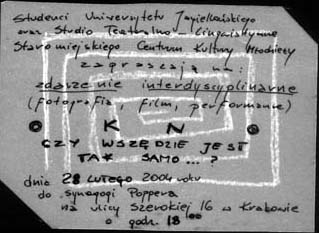 Studenci Uniwersytetu Jagiellońskiego
oraz Studio Teatralno-Lingwistyczne
Staromiejskiego Centrum Kultury Młodzieży
zapraszają na:
zdarzenie interdyscyplinarne
(fotografia, film, performance)
K N
CZY WSZĘDZIE JEST
TAK SAMO...?
dnia 28 LUTEGO 2004 roku
do synagogi Poppera
na ulicy Szerokiej 16 w Krakowie
o godz. 18 00